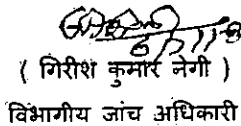 ( गिरीश कुमार नेगी )
विभागीय जांच अधिकारी